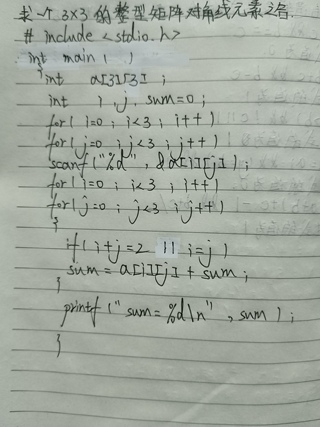 求一个3×3的整型矩阵对角线元素之合.
# include <stdio.h>
int main ( )
{int a[3][3] ;
int i, j, sum=0 ;
for( i=0 ; i<3 ; i++)
for( j=0 ; j<3 ; j++)
scanf("%d", &a[i][j]) ;
for( i=0 ; i<3 ; i++)
for( j=0 ; j<3 ; j++)
{
if( i+j=2 || i=j )
sum = a[i][j] + sum ;
}
printf(" sum= %d\n" , sum ) ;
}